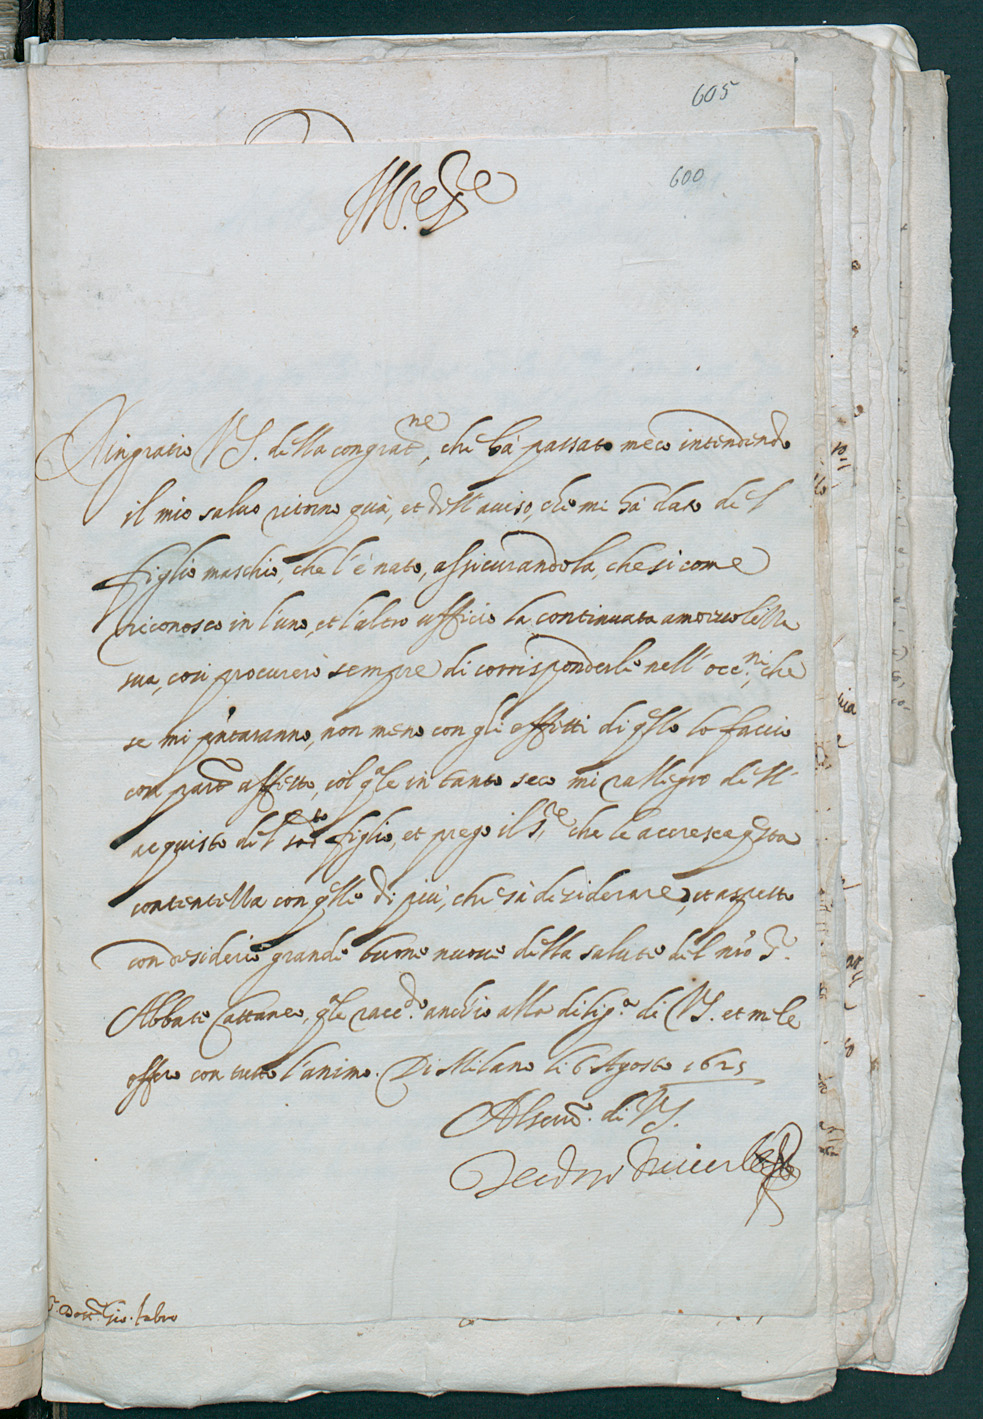 605
600
Ill.re S.re
Ringratio VS. della congrat.ne, che hà passato meco intendendo
il mio saluo ritorno quà, et dell'auiso, che mi hà dato del
figlio maschio, che l'è nato, assicurandola, che si come
riconosco in l'uno, et l'altro ufficio la continuata amoreuolezza
sua, così procurerò sempre di corrisponderle nell'occ.ni, che
se mi pñtaranno, non meno con gli effetti di qllo lo faccio
con pari affetto, col qle in tanto seco mi rallegro dell'
acquisto del sud.to figlio, et prego il S.re che le accresca qsta
contentezza con qllo di più, che sà desiderare, et aspetto
con desiderio grande buone nuoue della salute del nrõ S.r
Abbate Cattaneo, qle racc.do anch'io alla dilig.a di VS. et me le
offero con tutto l'animo. Di Milano li 6 Agosto 1625
Al seru.o di VS.
S.r Dott.r Gio. fabro